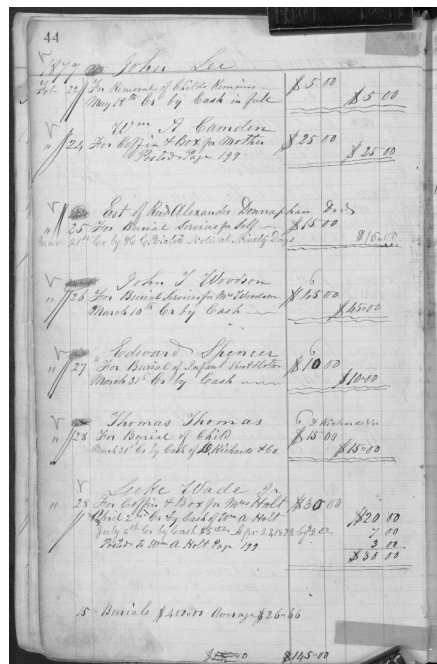 44
1879 John Lee
Feb 22 For Removal of Childs Remains $5 00
May 18th Cr by Cash in full $5 00
Wm A Camden
" 24 For Coffin & Box for Mother $25 00
Posted Page 199 $25 00
Est of Revd Alexander Donnaphan Decd
" 25 For Burial Services for Self $15 00
Mar 21st Cr by Note at Ninety Days $15.00
John T Woodson 6
" 26 For Burial Services for Mr Woodson $45 00
March 10th Cr by Cash $45.00
Edward Spencer 6
" 27 For Burial of Infant $10 00
March 31st Cr by Cash $10.00
Thomas Thomas 6 Richards & Co
" 28 For Burial of Child $15 00
March 31st Cr by Cash of D, Richards & Co. $15.00
Luke Wade Jr
" 28 For Coffin & Box for Mrs Holt $30 00
April 2nd Cr by Cash of Wm A Holt $20 00
July 6th Cr by Cash $5 00 Apr 22 1878 by 7 00
Posted to Wm A Holt Page 199 3 00
$30 00
15 = Burials $400.00 Average $26.66
$145.00